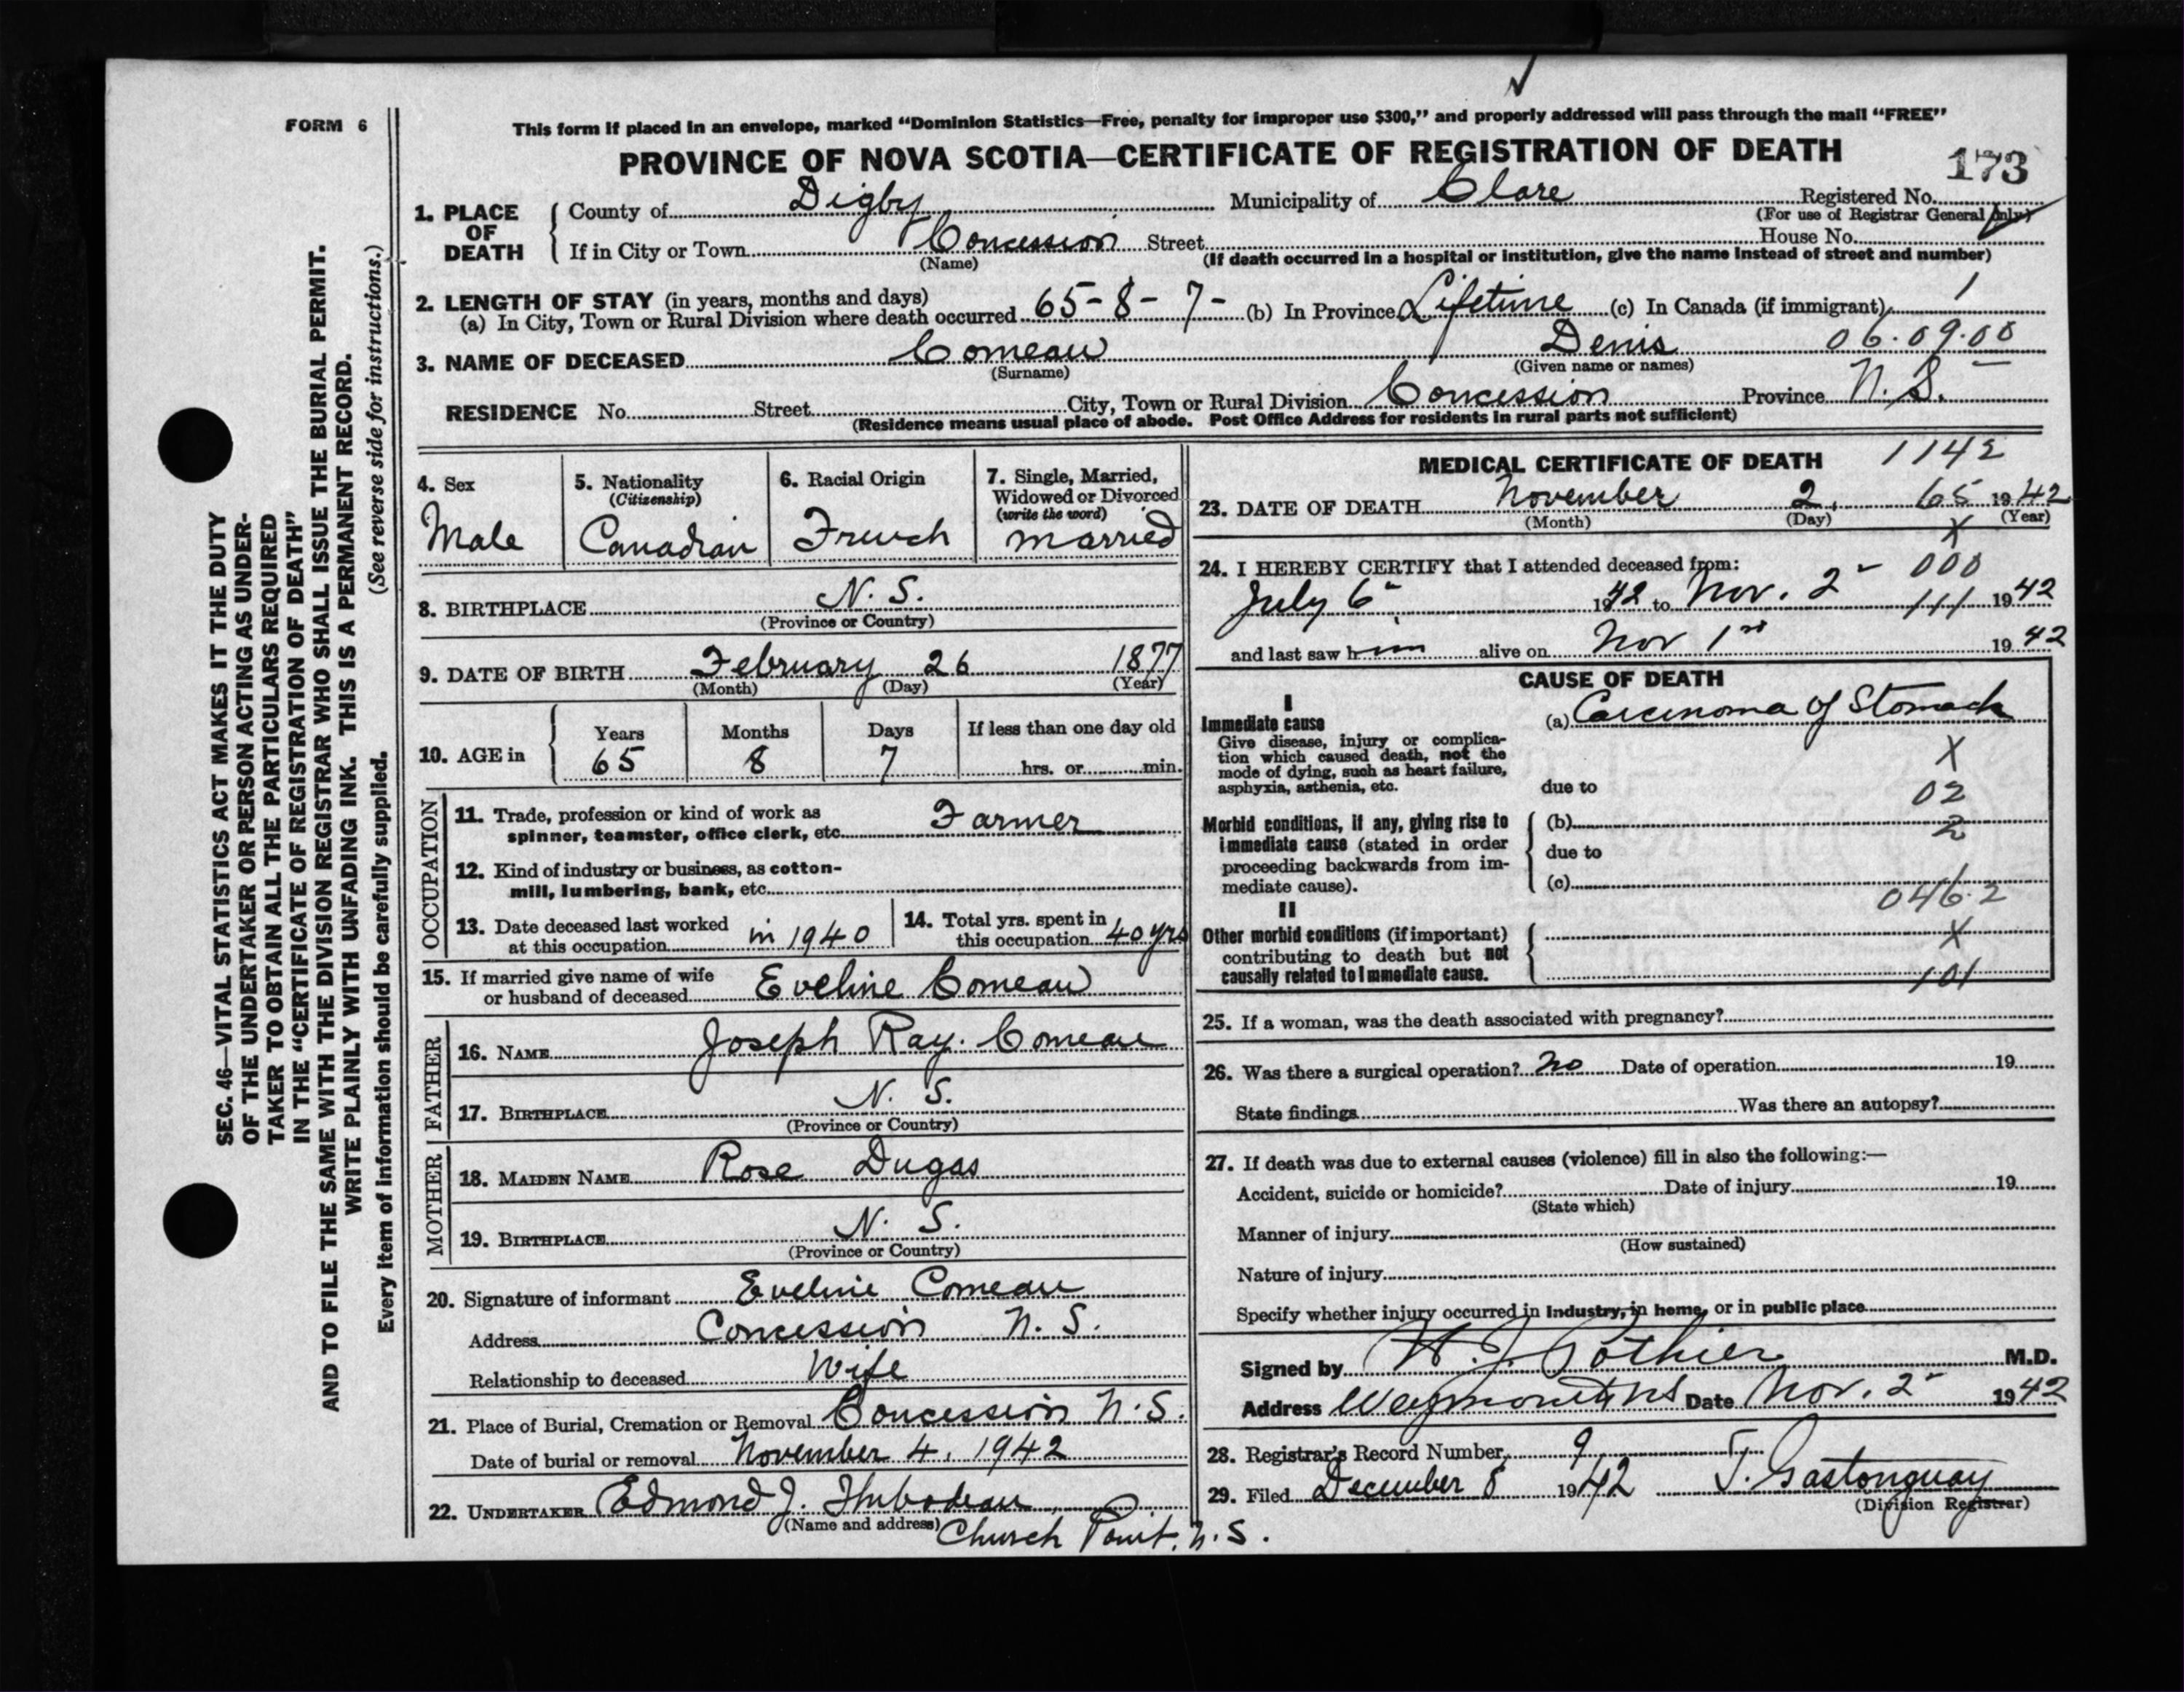 FORM 6
This form if placed in an envelope, marked “Dominion Statistics—Free, penalty for improper use $300,” and properly addressed will pass through the mail “FREE”
PROVINCE OF NOVA SCOTIA—CERTIFICATE OF REGISTRATION OF DEATH
173
1. PLACE OF DEATH
County of Digby Municipality of Clare Registered No.
(For use of Registrar General only)
If in City or Town Concession Street House No.
(Name) (If death occurred in a hospital or institution, give the name instead of street and number)
2. LENGTH OF STAY (in years, months and days)
(a) In City, Town or Rural Division where death occurred 65-8-7- (b) In Province Lifetime (c) In Canada (if immigrant) 1
3. NAME OF DECEASED Comeau Denis 06.09.00
(Surname) (Given name or names)
RESIDENCE No. Street City, Town or Rural Division Concession Province N.S.
(Residence means usual place of abode. Post Office Address for residents in rural parts not sufficient)
SEC. 46—VITAL STATISTICS ACT MAKES IT THE DUTY
OF THE UNDERTAKER OR PERSON ACTING AS UNDER-
TAKER TO OBTAIN ALL THE PARTICULARS REQUIRED
IN THE “CERTIFICATE OF REGISTRATION OF DEATH”
AND TO FILE THE SAME WITH THE DIVISION REGISTRAR WHO SHALL ISSUE THE BURIAL PERMIT.
WRITE PLAINLY WITH UNFADING INK. THIS IS A PERMANENT RECORD.
(See reverse side for instructions.)
Every item of information should be carefully supplied.
4. Sex
Male
5. Nationality
(Citizenship)
Canadian
6. Racial Origin
French
7. Single, Married,
Widowed or Divorced
(write the word)
Married
8. BIRTHPLACE N. S.
(Province or Country)
9. DATE OF BIRTH February 26 1877
(Month) (Day) (Year)
10. AGE in
Years Months Days If less than one day old
65 8 7 hrs. or min.
OCCUPATION
11. Trade, profession or kind of work as
spinner, teamster, office clerk, etc. Farmer
12. Kind of industry or business, as cotton-
mill, lumbering, bank, etc.
13. Date deceased last worked
at this occupation in 1940
14. Total yrs. spent in
this occupation 40 yrs
15. If married give name of wife
or husband of deceased Eveline Comeau
FATHER
16. NAME Joseph Ray. Comeau
17. BIRTHPLACE N. S.
(Province or Country)
MOTHER
18. MAIDEN NAME Rose Dugas
19. BIRTHPLACE N. S.
(Province or Country)
20. Signature of informant Eveline Comeau
Address Concession N. S.
Relationship to deceased Wife
21. Place of Burial, Cremation or Removal Concession N.S.
Date of burial or removal November 4, 1942
22. UNDERTAKER Edmond J. Thibodeau
(Name and address) Church Point, N.S.
MEDICAL CERTIFICATE OF DEATH 1142
23. DATE OF DEATH November 2, 65 1942
(Month) (Day) (Year)
X
24. I HEREBY CERTIFY that I attended deceased from: 000
July 6 1942 to Nov. 2 111 1942
and last saw him alive on Nov 1st 1942
CAUSE OF DEATH
I
Immediate cause
Give disease, injury or complica-
tion which caused death, not the
mode of dying, such as heart failure,
asphyxia, asthenia, etc.
(a) Carcinoma of Stomach
X
due to 02
Morbid conditions, if any, giving rise to
immediate cause (stated in order
proceeding backwards from im-
mediate cause).
(b) 2
due to
(c)
046.2
II
Other morbid conditions (if important)
contributing to death but not
causally related to immediate cause.
X
101
25. If a woman, was the death associated with pregnancy?
26. Was there a surgical operation? No Date of operation 19
State findings Was there an autopsy?
27. If death was due to external causes (violence) fill in also the following:—
Accident, suicide or homicide? Date of injury 19
(State which)
Manner of injury
(How sustained)
Nature of injury
Specify whether injury occurred in industry, in home, or in public place
Signed by Pothier M.D.
Address Weymouth NS Date Nov. 2 1942
28. Registrar's Record Number 9
29. Filed December 8 1942 J. Gastonguay
(Division Registrar)